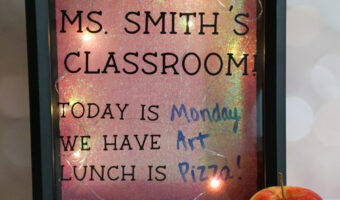 MS. SMITH'S
CLASSROOM!
TODAY IS Monday
WE HAVE Art
LUNCH IS Pizza!